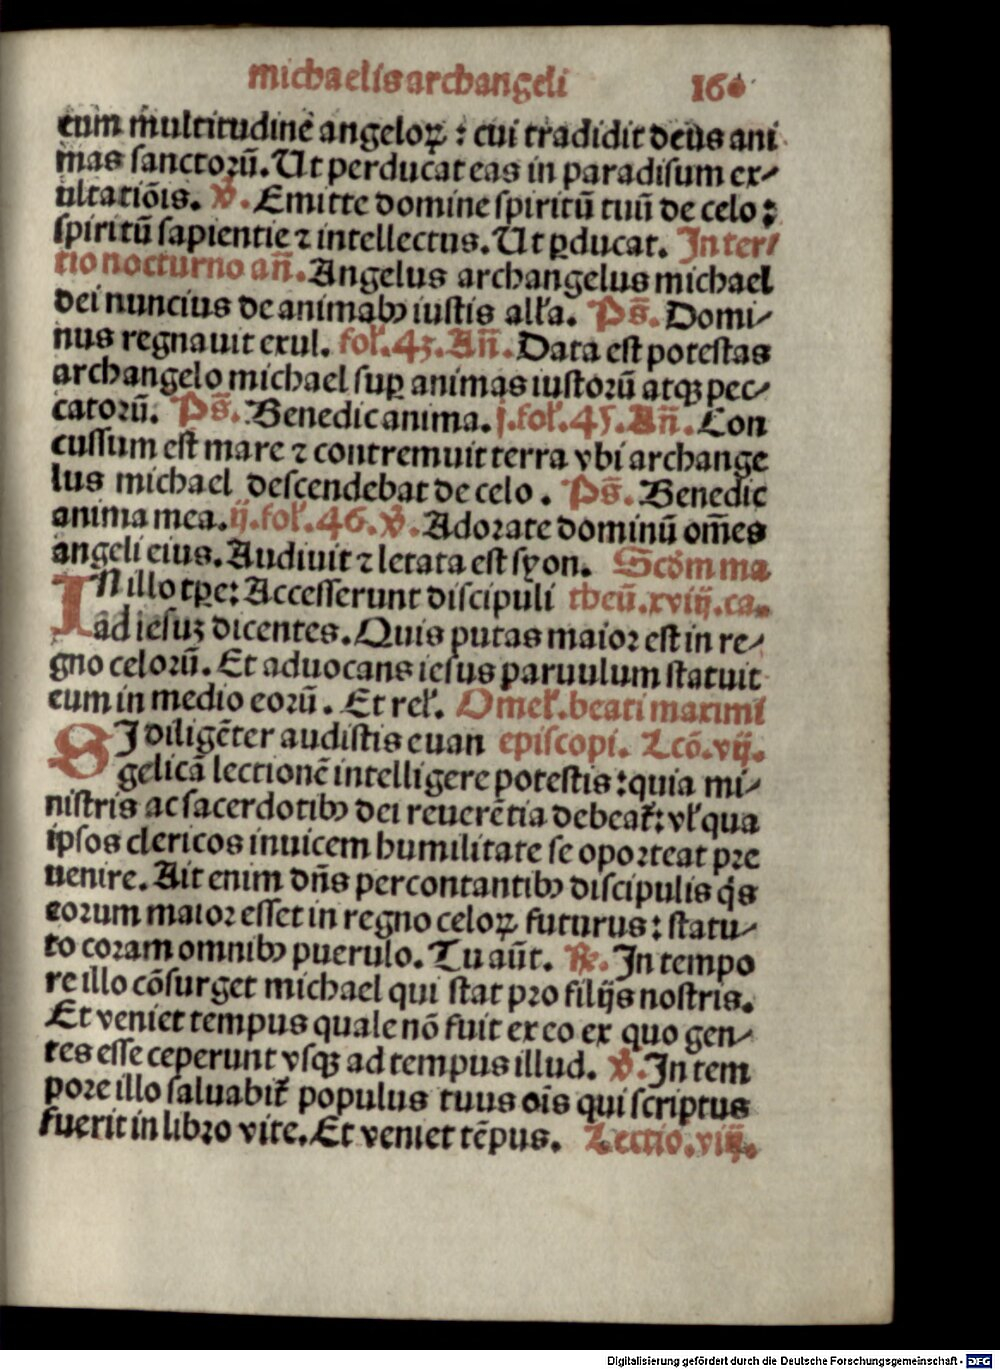 michaelis archangeli 160
cum multitudinē angeloꝝ : cui tradidit deus ani
mas sanctorū. Ut perducat eas in paradisum ex⸗
ultatiōis. ℣. Emitte domine spiritū tuū de celo:
spiritū sapientie ⁊ intellectus. Ut ꝑducat. In ter⸗
tio nocturno an̄. Angelus archangelus michael
dei nuncius de animabꝫ iustis all'a. Ps̄. Domi⸗
nus regnauit exul. fol'. 43. An̄. Data est potestas
archangelo michael suꝑ animas iustorū atqꝫ pec⸗
catorū. Ps̄. Benedic anima. j. fol'. 45. An̄. Con
cussum est mare ⁊ contremuit terra vbi archange
lus michael descendebat de celo. Ps̄. Benedic
anima mea. ij. fol'. 46. ℣. Adorate dominū om̄es
angeli eius. Audiuit ⁊ letata est syon. Scd̄m ma
IN illo tꝑe: Accesserunt discipuli theū. xviij. ca.
ad iesuꝫ dicentes. Quis putas maior est in re⸗
gno celorū. Et aduocans iesus paruulum statuit
eum in medio eorū. Et rel'. Omel'. beati maximi
SI diligēter audistis euan episcopi. Lcō. vij.
gelicā lectionē intelligere potestis: quia mi⸗
nistris ac sacerdotibꝫ dei reuerētia debeat᷑: vl' qua
ipsos clericos inuicem humilitate se oporteat pre
uenire. Ait enim dn̄s percontantibꝫ discipulis q̇s
eorum maior esset in regno celoꝝ futurus: statu⸗
to coram omnibꝫ puerulo. Tu aūt. ℟. In tempo
re illo cōsurget michael qui stat pro filijs nostris.
Et veniet tempus quale nō fuit ex eo ex quo gen⸗
tes esse ceperunt vsqꝫ ad tempus illud. ℣. In tem
pore illo saluabit᷑ populus tuus oīs qui scriptus
fuerit in libro vite. Et veniet tēpus. Lectio. viij.
Digitalisierung gefördert durch die Deutsche Forschungsgemeinschaft - DFG